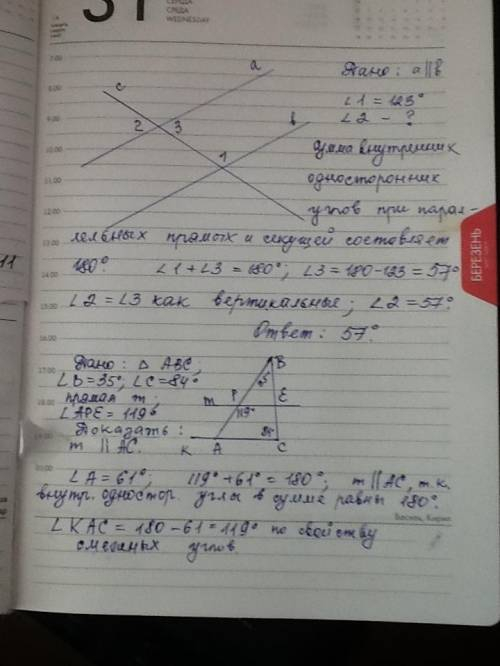 31
СЕРЕДА
СРЕДА
WEDNESDAY
7.00
8.00
9.00
10.00
11.00
12.00
13.00
14.00
15.00
16.00
17.00
18.00
19.00
20.00
11
БЕРЕЗЕНЬ
c
a
b
2
3
1
Дано: a||b
∠1 = 123°
∠2 - ?
Сумма внутренних
односторонних
углов при парал-
лельных прямых и секущей составляет
180°. ∠1+∠3 = 180°; ∠3 = 180-123 = 57°
∠2 = ∠3 как вертикальные; ∠2 = 57°.
Ответ: 57°.
Дано: △ ABC;
∠B=35°, ∠C=84°
прямая m;
∠APE = 119°
Доказать:
m || AC.
B
35
m
P
E
119°
84
K
A
C
∠A = 61°; 119°+61° = 180°; m || AC, т.к.
внутр. одностор. углы в сумме равны 180°.
∠KAC = 180-61 = 119° по свойству
смежных углов.